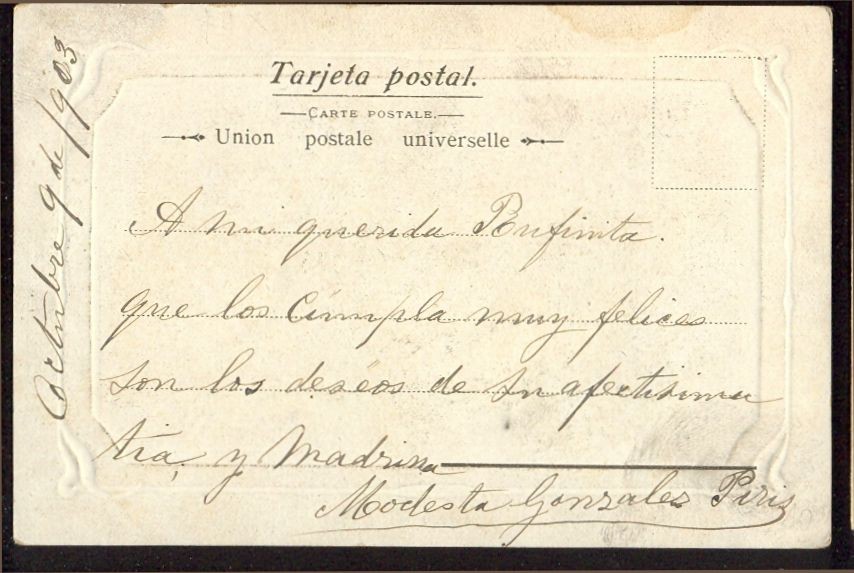 Tarjeta postal.
CARTE POSTALE.
Union postale universelle
Octubre 9 de 1903
A mi querida Rufinita.
que los cúmpla muy felices
son los deséos de su afectisima
tía, y Madrina
Modesta Gonzalez Piriz